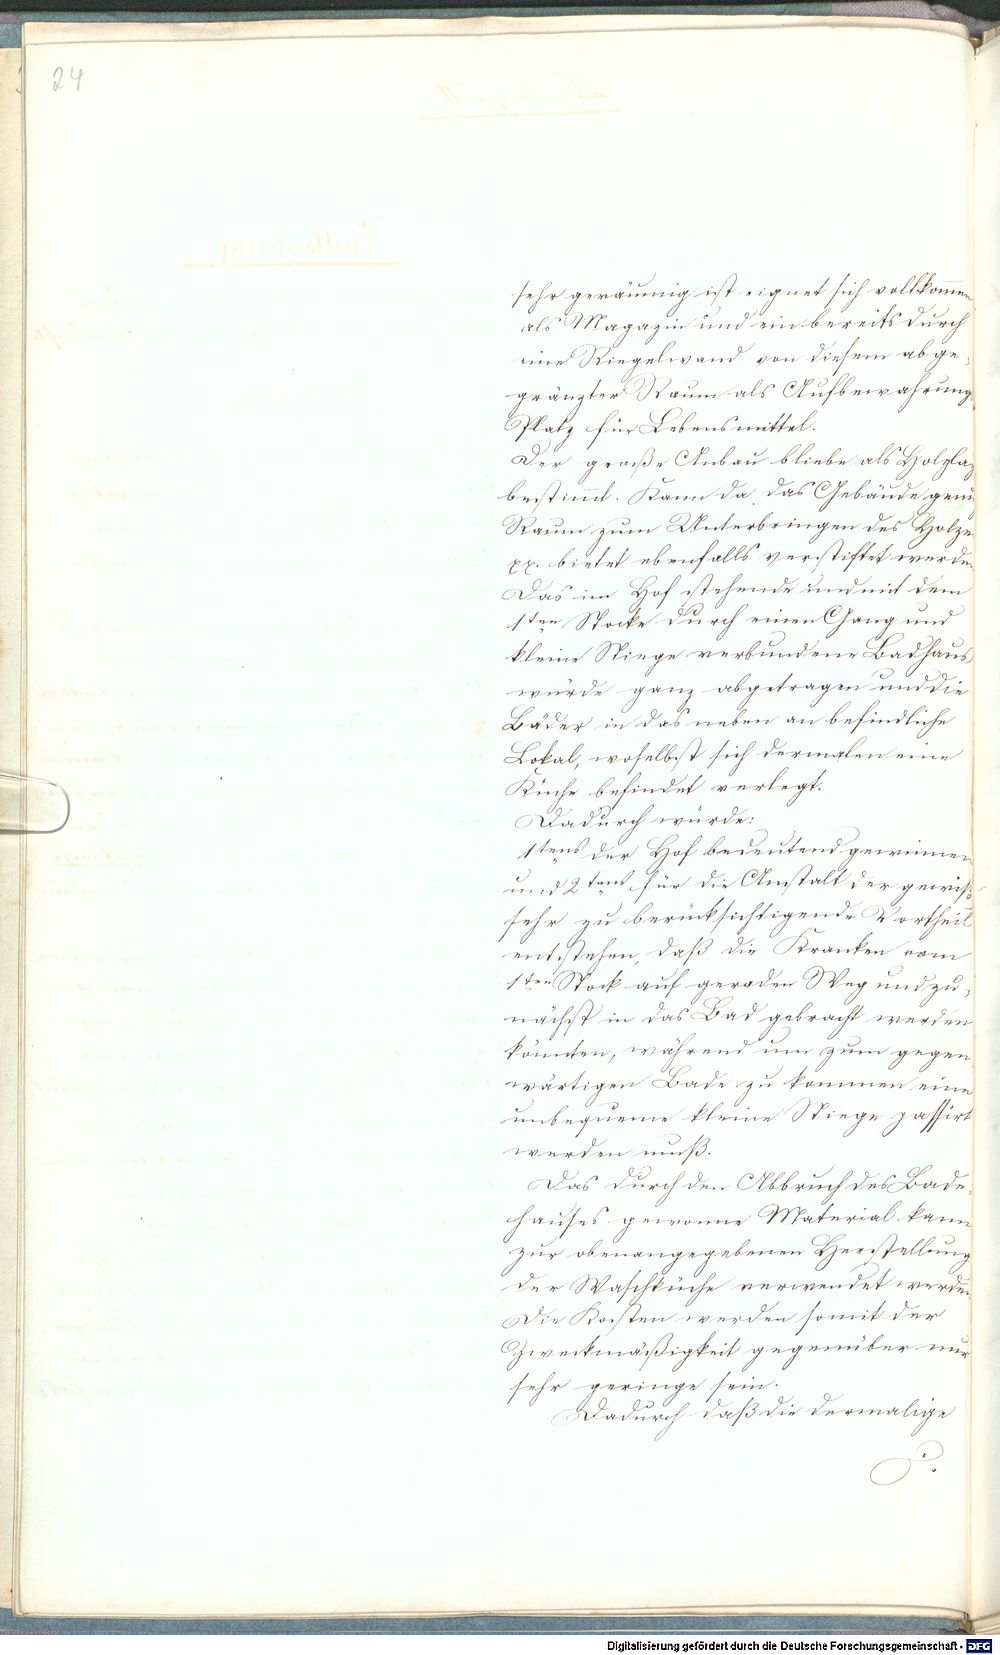 24
sehr geräumig ist eignet sich vollkom̄en
als Magazin und ein bereits durch
eine Riegelwand von diesem abge-
gränzter Raum als Aufbewahrung
Platz für Lebensmittel.
Der große Anbau bliebe als Holzlag
bestim̄t. Kann da das Gebäude genu
Raum zum Unterbringen des Holze
pp. bietet ebenfalls verstiftet werde
Das im Hof stehende und mit dem
1ten Stocke durch einen Gang und
kleine Stiege verbundene Badhaus
würde ganz abgetragen und die
Bäder in das neben an befindliche
Lokal, woselbst sich dermalen eine
Küche befindet verlegt.
Dadurch würde:
1tens der Hof bedeutend gewinnen
und 2tens für die Anstalt der gewiß
sehr zu berücksichtigende Vortheil
entstehen, daß die Kranken vom
1ten Stock auf geraden Weg und zu-
nächst in das Bad gebracht werden
könnten, während um zum gegen-
wärtigen Bade zu kommen eine
unbequeme kleine Stiege passirt
werden muß.
Das durch den Abbruch des Bade-
hauses gewonne Material kann
zur obenangegebenen Herstellung
der Waschküche verwendet werden
Die Kosten werden somit der
Zweckmäßigkeit gegenüber nur
sehr geringe sein.
Dadurch daß die dermalige
Digitalisierung gefördert durch die Deutsche Forschungsgemeinschaft - DFG